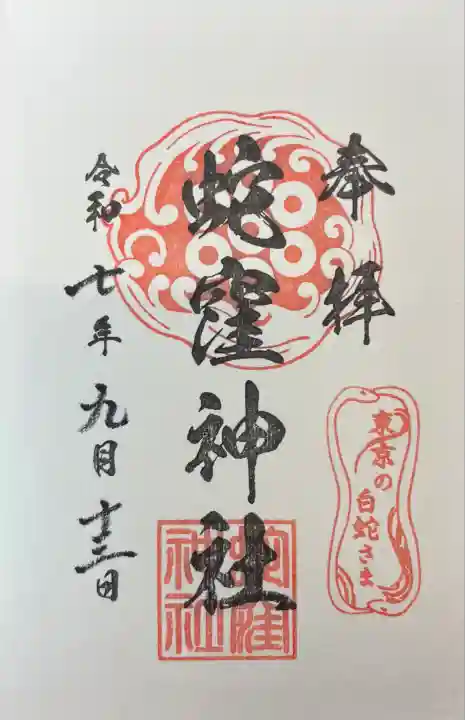 奉拝
東京の白蛇さま
蛇窪神社
蛇窪
神社
令和七年九月十三日